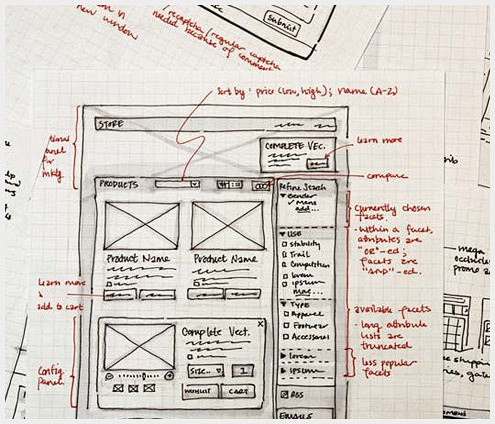 new window
recaptcha/regular captcha
needed because of comment
Submit
sort by: price (low, high); name (A-Z)
STORE
COMPLETE VEC.
learn more
panel
for
mktg.
PRODUCTS
compare
Refine Search
Gender
Mens
add...
currently chosen
facets.
USE
Stability
Trail
Competition
lorem
ipsum
more...
- within a facet,
attributes are
"OR"-ed;
facets are
"AND"-ed.
Product Name
Product Name
learn more
&
add to cart
TYPE
Apparel
Footwear
Accessories
available facets
- long attribute
lists are
truncated
lorem
ipsum
less popular
facets
Config
panel
Complete Vect.
X
Size..
1
WISHLIST
CART
RSS
EMAILS
mega
promo
shipping